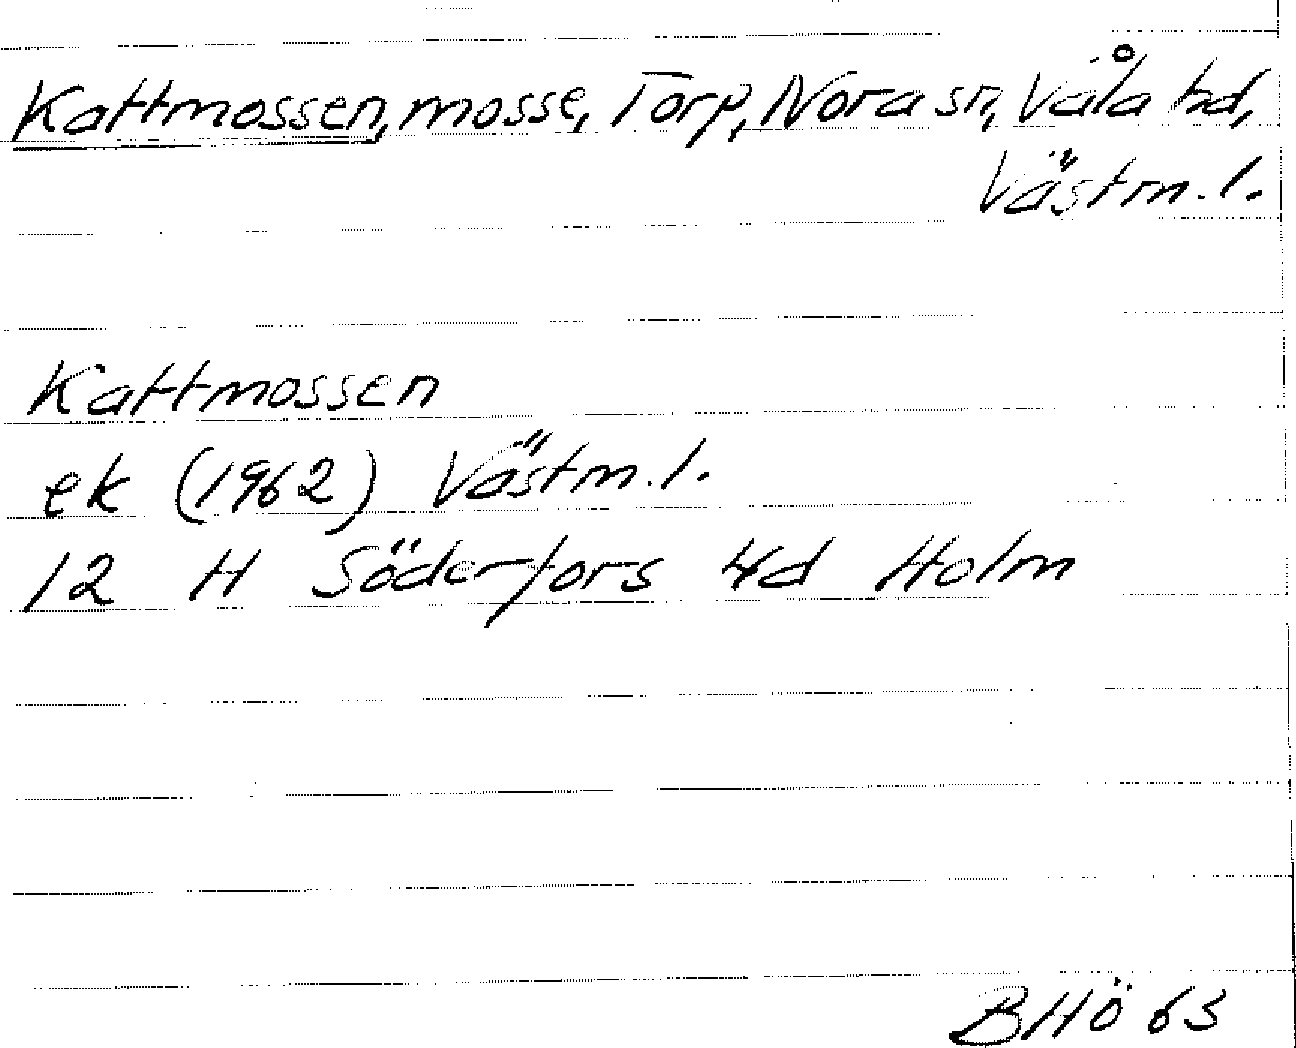 Kattmossen, mosse, Torp, Nora sn, Våla hd,
Västm. l.
Kattmossen
ek (1962) Västm. l.
12 H Söderfors 4d Holm
BHÖ 63